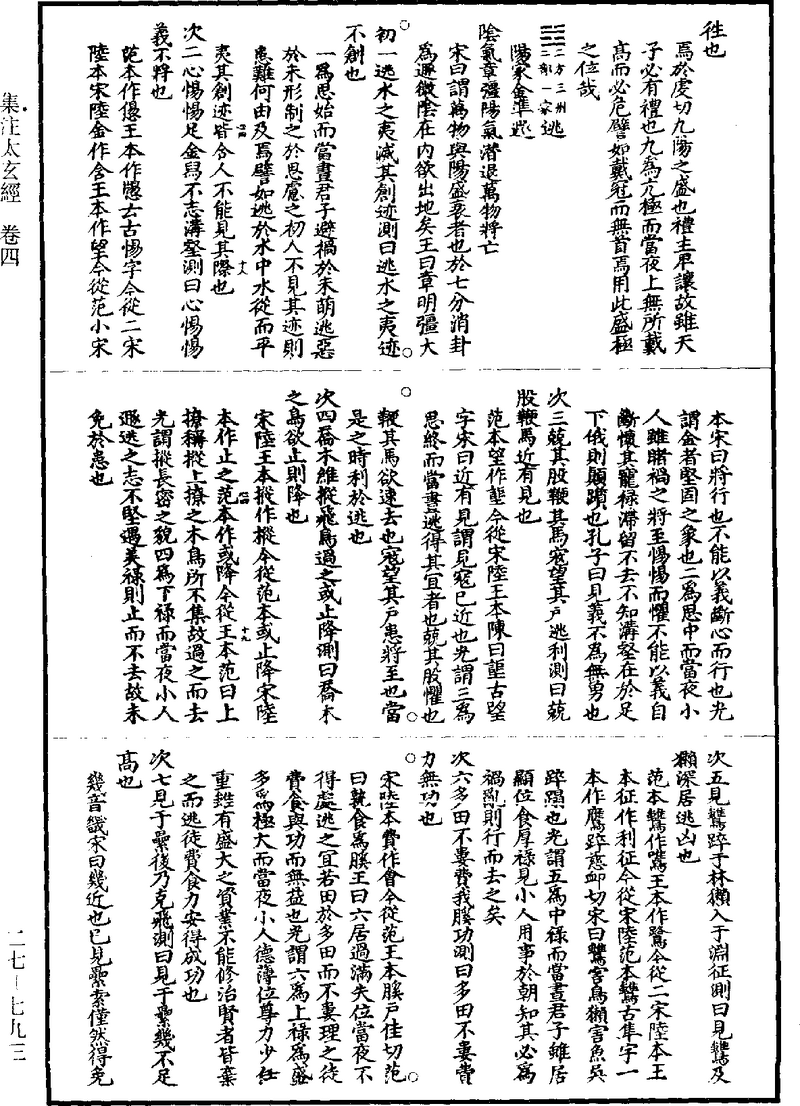 集注太玄經　卷四
往也
焉於虔切九陽之盛也禮主卑讓故雖天
子必有禮也九爲亢極而當夜上無所戴
高而必危譬如戴冠而無首焉用此盛極
之位哉
三方三州
三部一家
逃
陽家金準遯
陰氣章彊陽氣潛退萬物將亡
宋曰謂萬物與陽盛衰者也於七分消卦
爲遯微陰在內欲出地矣王曰章明彊大
初一逃水之夷滅其創迹測曰逃水之夷迹
不創也
一爲思始而當晝君子避禍於未萌逃惡
於未形制之於思慮之初人不見其迹則
患難何由及焉譬如逃於水中水從而平
夷其創迹皆合人不能見其際也
次二心惕惕足金舄不志溝壑測曰心惕惕
義不將也
范本作傷王本作懸古惕字今從二宋
陸本宋陸金作含王本作望今從范小宋
本宋曰將行也不能以義斷心而行也光
謂金者堅固之象也二爲思中而當夜小
人雖睹禍之將至惕惕而懼不能以義自
斷懷其寵祿滯留不去不知溝壑在於足
下俄則顚躓也孔子曰見義不爲無勇也
次三兢其股鞭其馬寇望其戶逃利測曰兢
股鞭馬近有見也
范本望作朢今從宋陸王本陳曰朢古望
字宋曰近有見謂見寇已近也光謂三爲
思終而當晝逃得其宜者也兢其股懼也
鞭其馬欲速去也寇望其戶患將至也當
是之時利於逃也
次四喬木維摐飛鳥過之或止降測曰喬木
之鳥欲止則降也
宋陸王本摐作樅今從范本或止降宋陸
本作止之范本作或降今從王本范曰上
撩稱摐上撩之木鳥所不集故過之而去
光謂摐長密之貌四爲下祿而當夜小人
遯逃之志不堅遇美祿則止而不去故未
免於患也
次五見鷕踤于林獺入于淵征測曰見鷕及
獺深居逃凶也
范本鷕作噰王本作鷺今從二宋陸本王
本征作利征今從宋陸范本鷕古隼字一
本作鷹踤慈卹切宋曰鷕害鳥獺害魚吳
踤蹋也光謂五爲中祿而當晝君子雖居
顯位食厚祿見小人用事於朝知其必爲
禍亂則行而去之矣
次六多田不婁費我膎功測曰多田不婁費
力無功也
宋陸本費作會今從范王本膎戶佳切范
曰熟食爲膎王曰六居過滿失位當夜不
得處逃之宜若田於多田而不婁理之徒
費食與功而無益也光謂六爲上祿爲盛
多爲極大而當夜小人德薄位尊力少任
重雖有盛大之資業不能修治賢者皆棄
之而逃徒費食力安得成功也
次七見于纍後乃克飛測曰見于纍幾不足
高也
幾音譏宋曰幾近也已見纍索僅然得免
二七—七九三